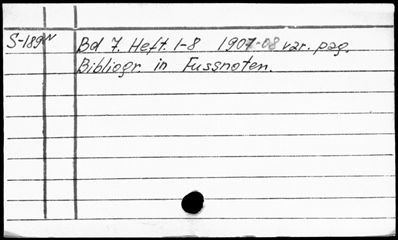 S-189N Bd 7. Heft. 1-8 1907-08 var. pag.
Bibliogr. in Fussnoten.